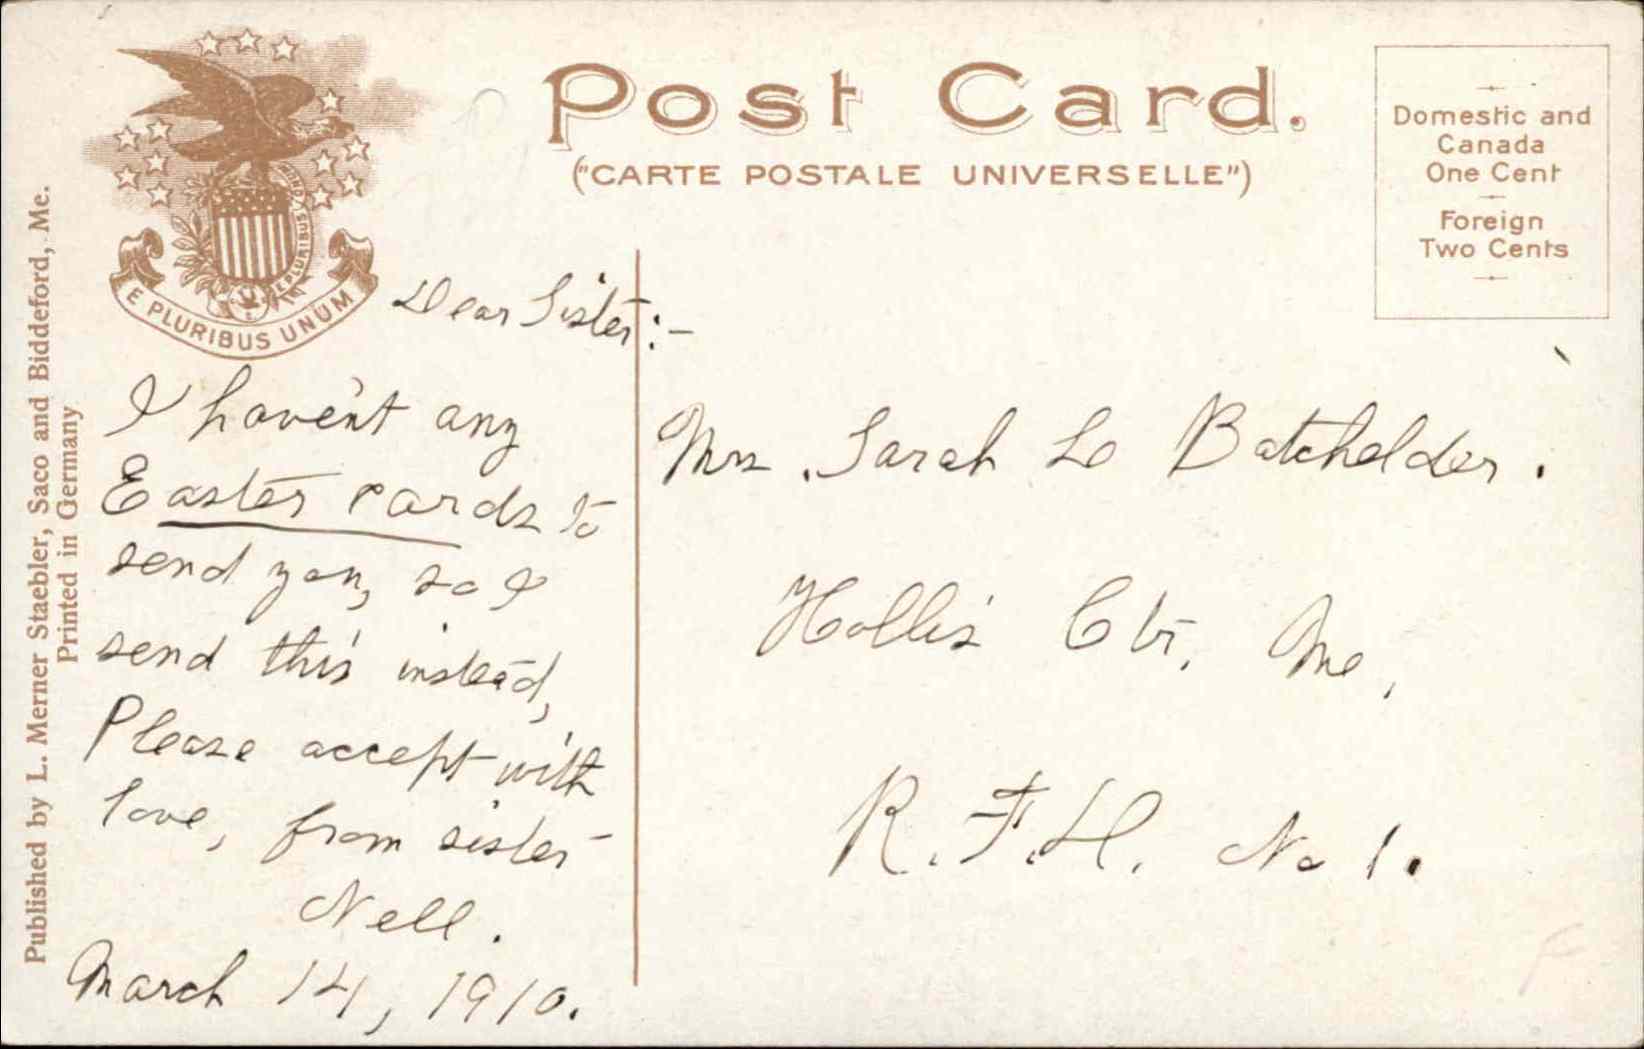 Post Card.
("CARTE POSTALE UNIVERSELLE")
Domestic and
Canada
One Cent
Foreign
Two Cents
E PLURIBUS UNUM
E PLURIBUS
Published by L. Merner Staebler, Saco and Biddeford, Me.
Printed in Germany
Dear Sister:-
I haven't any
Easter cards to
send you, so I
send this instead,
Please accept with
love, from sister
Nell.
March 14, 1910.
Mrs. Sarah Lo Batchelder.
Hollis Ctr, Me,
R.F.D. No 1.